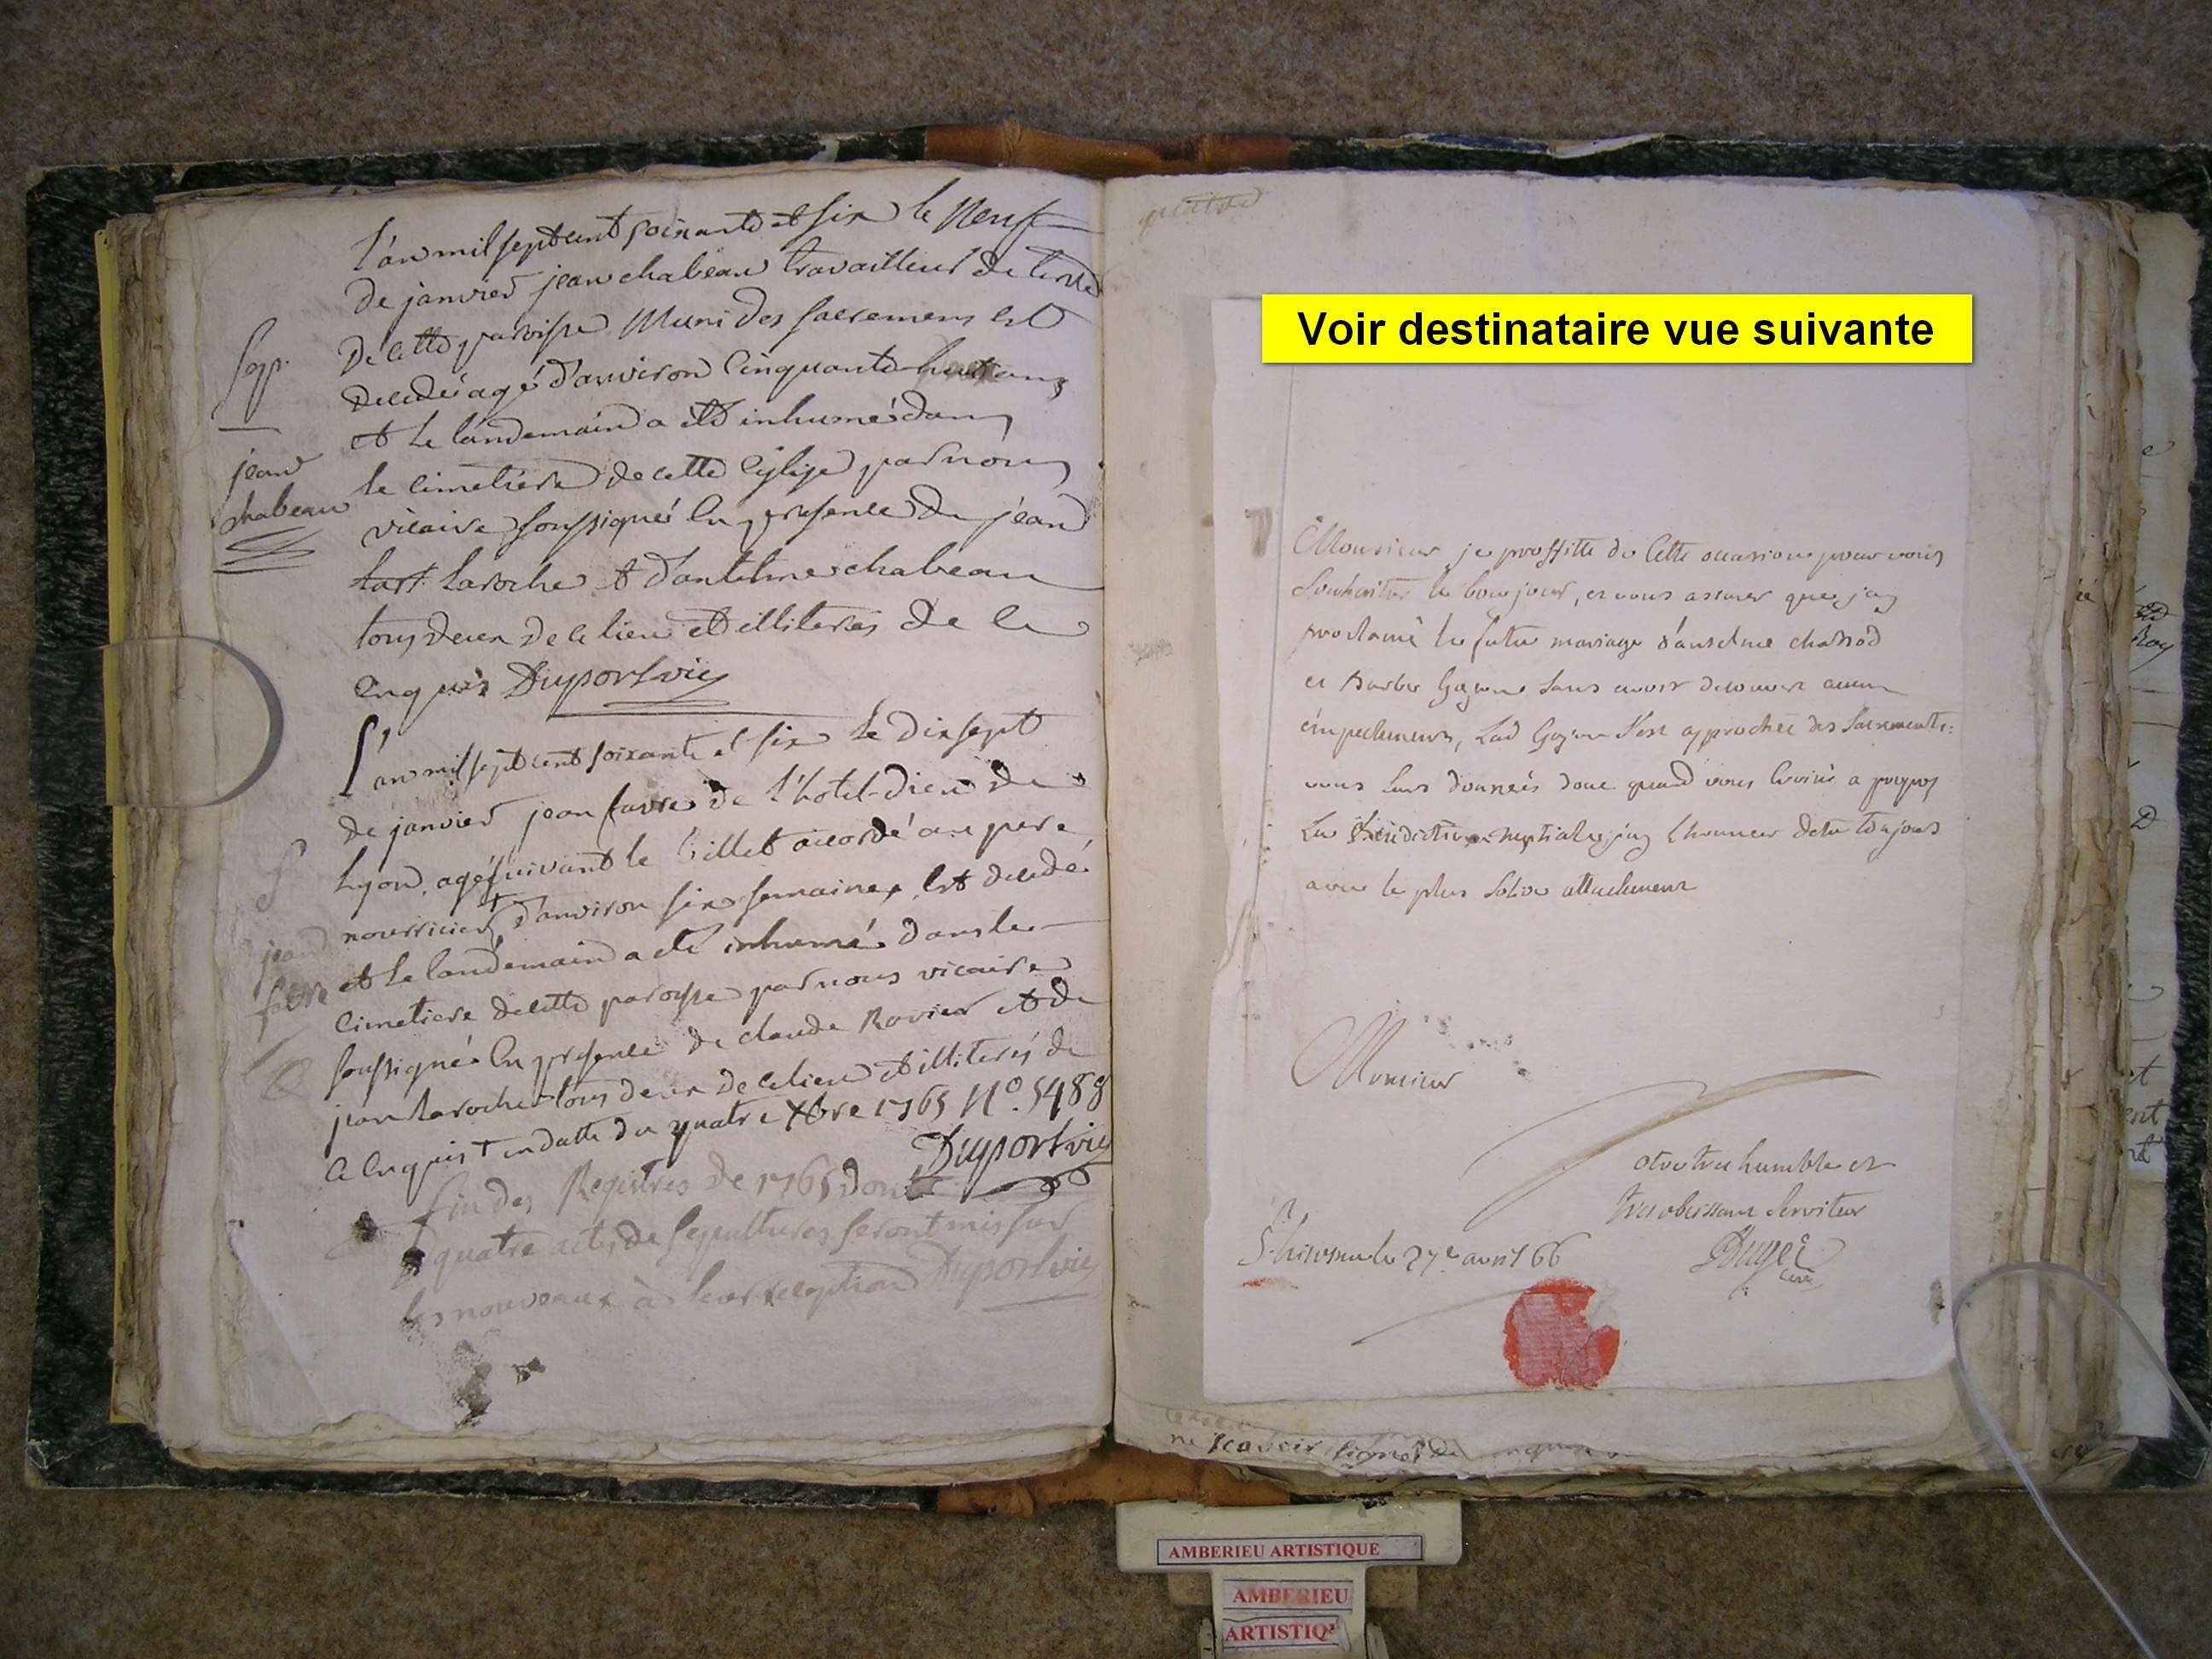 l'an mil sept cent soixante et six le neuf
de janvier jean chabeau travailleur de terre
de cette paroisse muni des sacremens est
decedé agé d'anviron cinquante huit ans
et le landemain a eté inhumé dans
le cimetière de cette église par nous
vicaire soussigné en presence de jean
laroche et d'antelme chabeau
tous deux de ce lieu et illiterés de ce
enquis Duport vic
Sep.
jean
chabeau
L'an mil sept cent soixante et six le dix sept
de janvier jean favre de l'hotel-dieu de
Lyon, agé suivant le billet acordé au pere
nourricier + d'anviron six semaines, est decedé
et le landemain a eté inhumé dans le
cimetiere de cette paroisse par nous vicaire
soussigné en presence de claude Rovier et de
jean laroche tous deux de ce lieu et illiterés de
ce enquis + en datte du quatre Xbre 1765 N°. 5488
Duport vic
S
jean
favre
fin des Registres de 1765 dont
quatre actes de sepultures seront mis sur
les nouveaux à leur reception Duport vic
Voir destinataire vue suivante
Monsieur je proffitte de cette occasion pour vous
souhaitter le bon jour, et vous assurer que j'ay
proclamé le futur mariage d'anselme chassod
et Barbe Goyone sans avoir decouvert aucun
empechement, Lad Goyone s'est approchée des sacrements:
vous leurs donnerés donc quand vous le voirés a propos
La Benediction nuptiale, j'ay l'honneur detre toujours
avec le plus solide attachement
Monsieur
votre tres humble et
tres obeissant serviteur
le 27e avril 66
curé
ne scavoir signer de
AMBERIEU ARTISTIQUE
AMBERIEU
ARTISTIQ